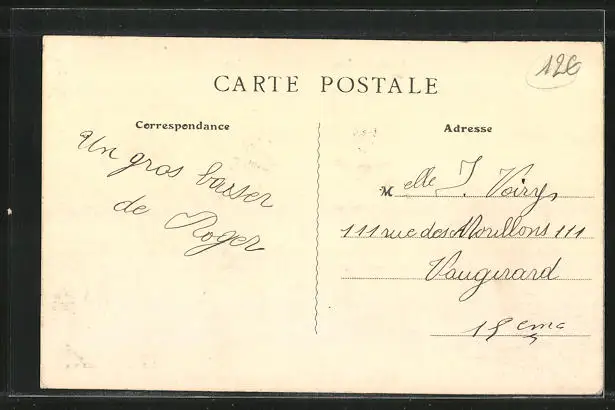 CARTE POSTALE
126
Correspondance
Un gros baiser
de Roger
Adresse
Melle J. Voiry
111 rue des Morillons 111
Vaugirard
15eme